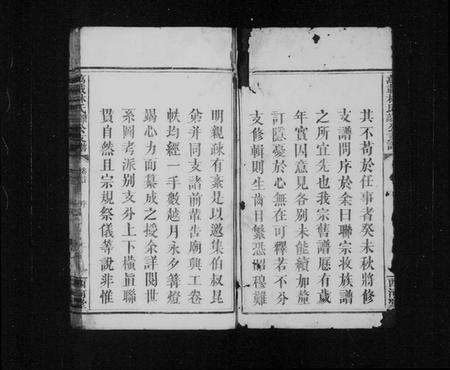 其不苟於任事者癸未秋將修
支譜問序於余曰聯宗收族譜
之所宜先也我宗舊譜歷有歲
年實因意見各別未能續加釐
訂隱憂於心無在可釋若不分
支修輯則生齒日繁恐昭穆難
明親疎有紊是以邀集伯叔昆
弟并同支諸前輩告廟興工卷
帙均經一手數越月永夕篝燈
竭心力而纂成之授余詳閱世
系圖考派別支分上下橫直聯
貫自然且宗規祭儀等說非惟